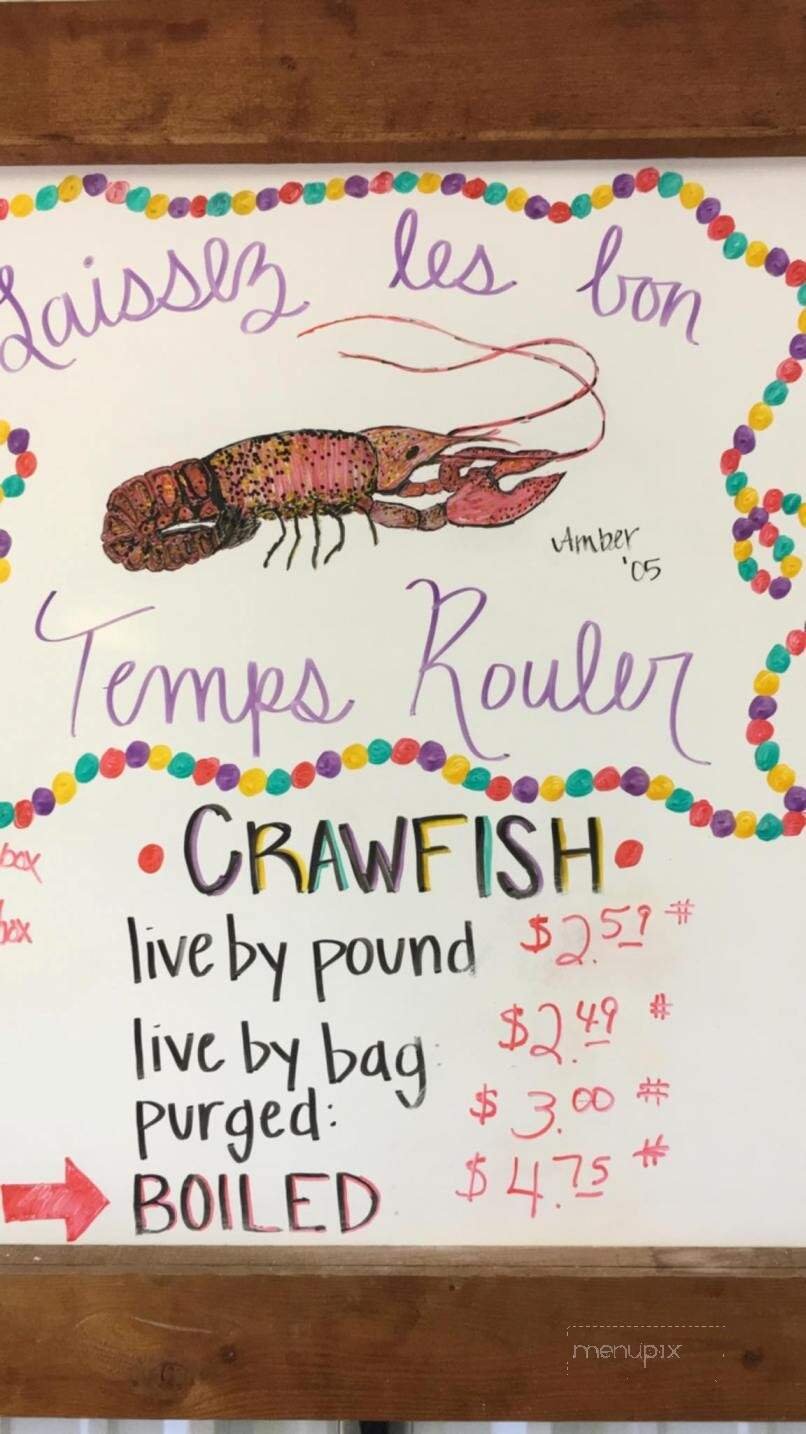 Laissez les bon
Amber
'05
Temps Rouler
• CRAWFISH •
box
live by pound $2.59 #
box
live by bag: $2.49 #
purged: $3.00 #
BOILED $4.75 #
menupix